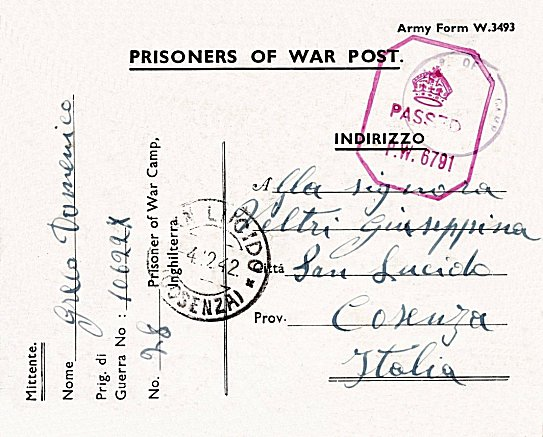 Army Form W.3493
PRISONERS OF WAR POST.
PASSED
P.W. 6791
INDIRIZZO
Alla signora
Veltri Giuseppina
Città San Lucido
Prov. Cosenza
Italia
LUCIDO
4.2.42
(COSENZA)
Mittente.
Nome Greco Domenico
Prig. di
Guerra No :
No. 28 Prisoner of War Camp,
Inghilterra.